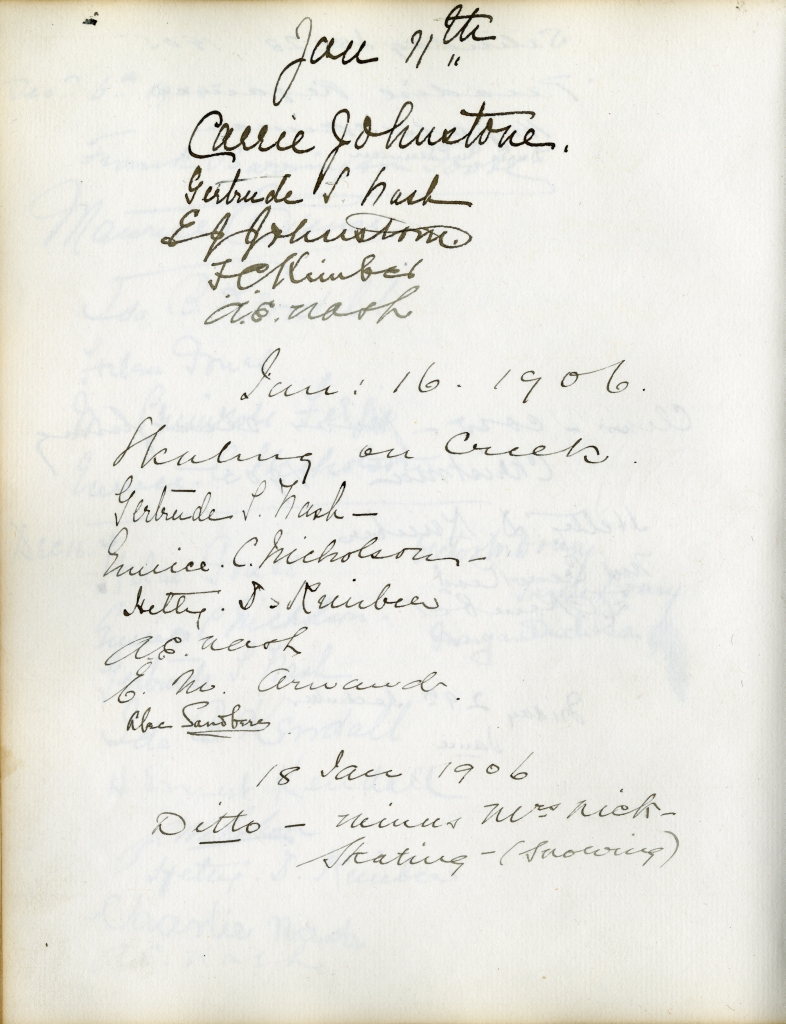 Jan 11th
Carrie Johnstone.
Gertrude S. Nash
E J Johnstone.
F C Kimber
A.E. Nash
Jan: 16. 1906.
Skating on Creek.
Gertrude S. Nash –
Eunice. C. Nicholson –
Hetty. D. Kimber
A.E. Nash
E. M. Armand.
Alex Sandberg
18 Jan 1906
Ditto – minus Mrs Nick –
Skating – (Snowing)